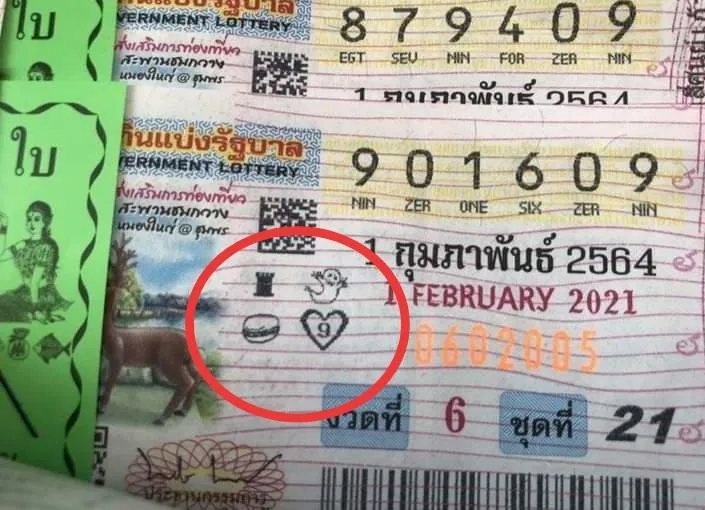 ใบ
VERNMENT LOTTERY
8 7 9 4 0 9
EGT SEV NIN FOR ZER NIN
ส่งเสริมการท่องเที่ยว
สะพานชมกวาง
หนองใหญ่ @ ชุมพร
1 กุมภาพันธ์ 2564
ใบ
กินแบ่งรัฐบาล
VERNMENT LOTTERY
9 0 1 6 0 9
NIN ZER ONE SIX ZER NIN
ส่งเสริมการท่องเที่ยว
สะพานชมกวาง
หนองใหญ่ @ ชุมพร
1 กุมภาพันธ์ 2564
1 FEBRUARY 2021
9
0602005
งวดที่ 6 ชุดที่ 21
ประธานกรรมการ